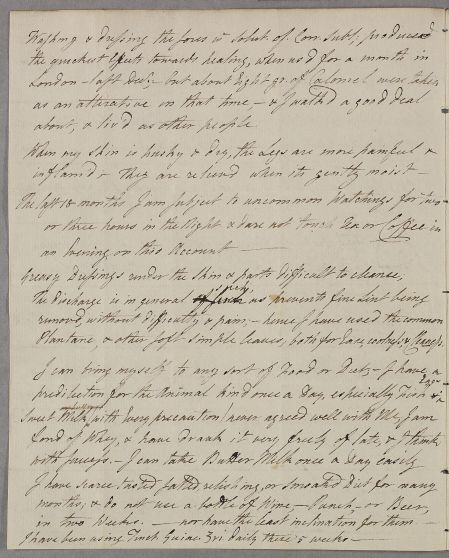 Washing & dressing the sores in Solut. of Corr. Subl. produced
the quickest effects towards healing, when us'd for a month in
London - last Dec. - but about Eight gr. of Calomel were taken
as an alterative in that time - & I walk'd a good deal
about, & liv'd as other people.
When my skin is husky & dry, the Legs are more painful &
inflam'd - they are reliev'd when its gently moist -
The last 18 months I am subject to uncommon Watchings for two
or three hours in the Night & dare not touch Tea or Coffee in
an Evening on this Account
Greasy Dressings under the skin & parts difficult to cleanse;
the discharge is in general such as prevents fine lint being
remov'd, without difficulty & pain; - hence I have used the common
Plantane & other soft simple leaves, both for Ease, coolness, &
I can bring myself to any sort of Food or Diet - I have a
predilection for the Animal kind once a Day, especially Fish &
Sweet Milk, with every precaution never agreed well with Me, I am
fond of Whey, & have drank it very freely of late, & I think
with success. - I can take Butter Milk once a Day easily
I have scarce tasted salted relishing, or smoaked Diet for many
months; & do not use a bottle of Wine, - Punch, - or Beer,
in two Weeks. - nor have the least inclination for them. -
I have been using Tinct. Guiac. Ʒii daily these 5 weeks -